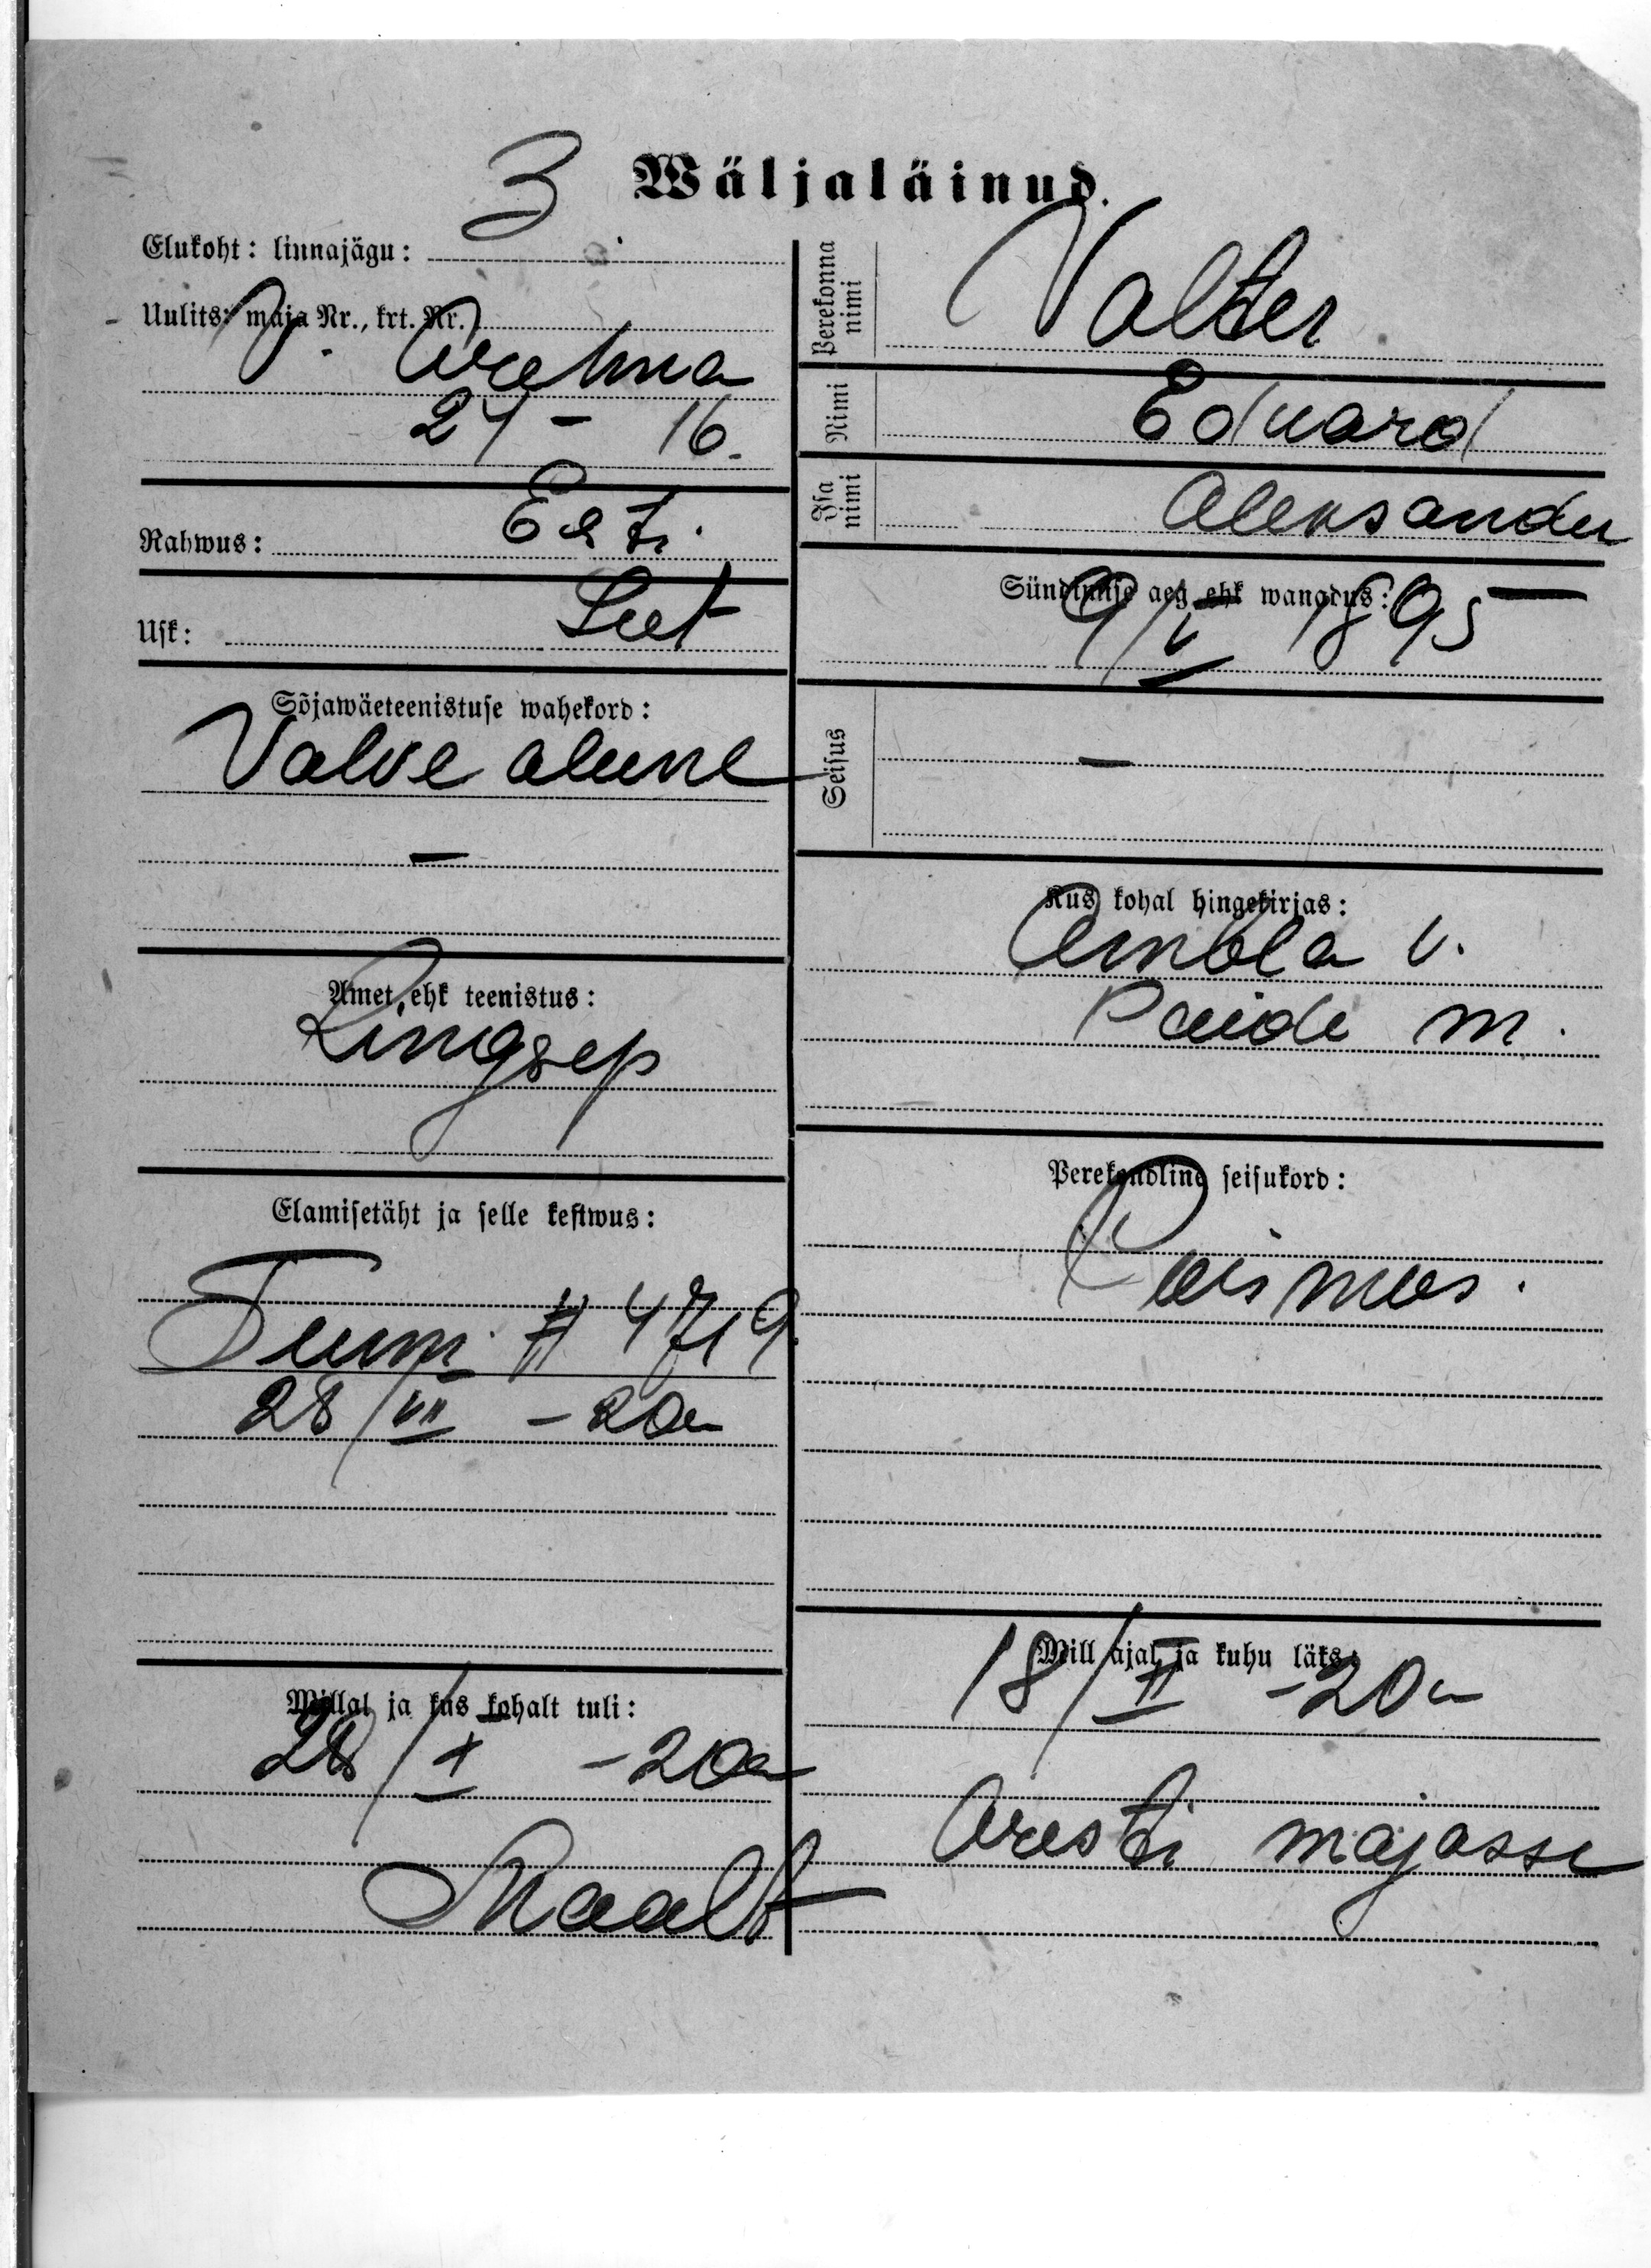 3 Wäljaläinud.
Elukoht: linnajägu:
Uulits: maja Nr., krt. Nr.
24 – 16.
Rahwus: Esti.
Usk: Lut
Sõjawäeteenistuse wahekord:
Valve alune
–
Amet ehk teenistus:
Kingsep
Elamisetäht ja selle kestwus:
# 4719
28/VII – 20a
Millal ja kus kohalt tuli:
28/X – 20a
Maalt
Perekonna nimi Valter
Nimi Eduard
Isa nimi Aleksander
Sündimise aeg ehk wanadus:
9/V 1895
Seisus –
Kus kohal hingekirjas:
Ambla v.
Paide m.
Perekondline seisukord:
Poismees.
Mill ajal ja kuhu läks:
18/II – 20a
Aresti majasse